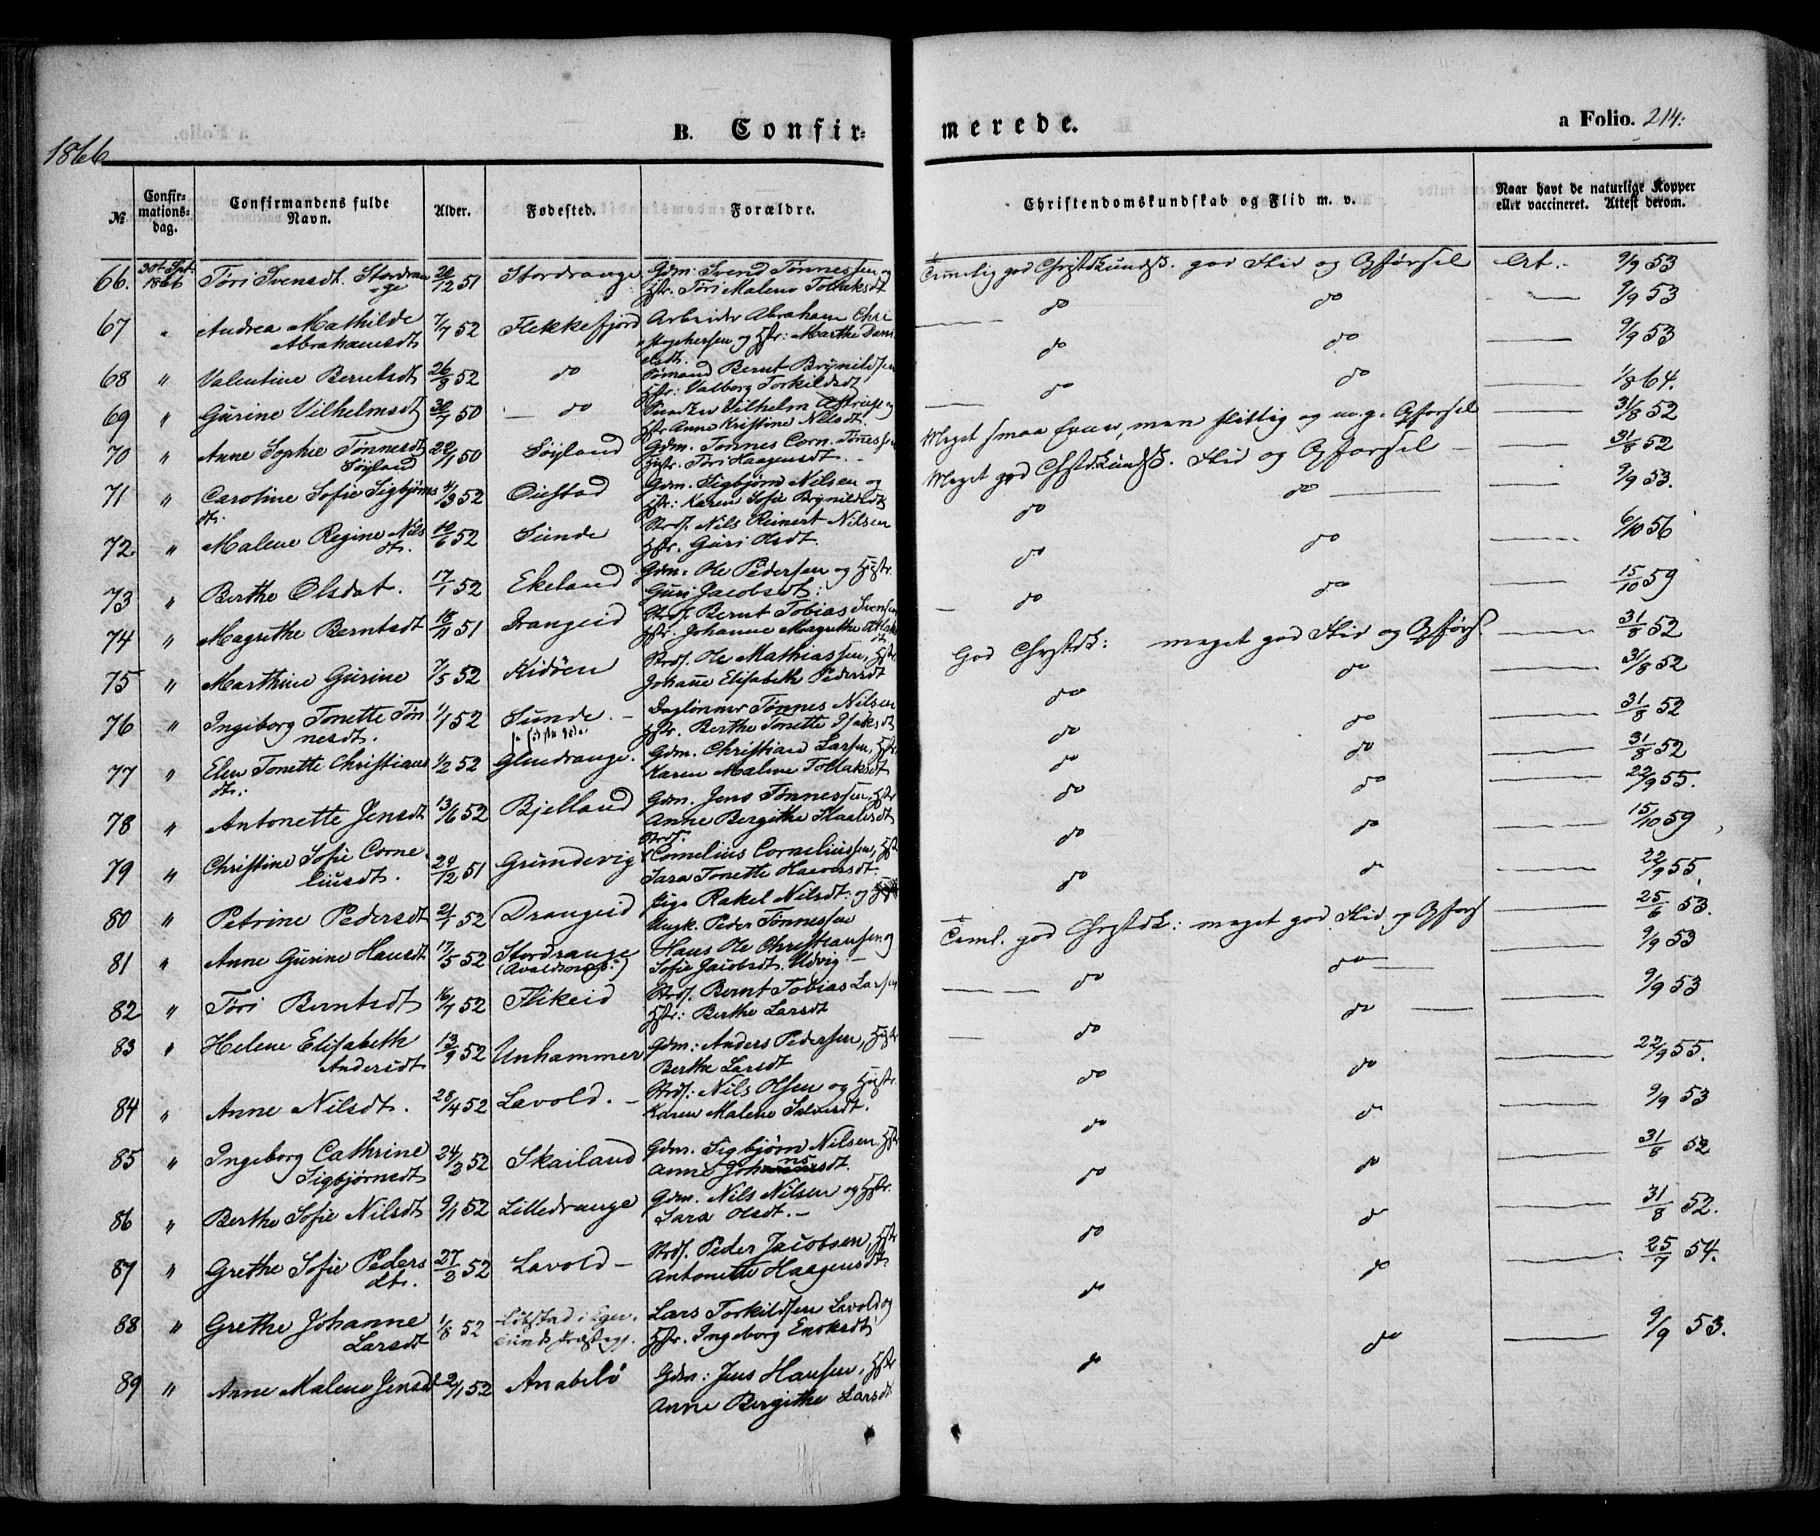 1866
B. Confir-
merede.
a Folio. 214:
№
Confir-
mations-
dag.
Confirmandens fulde
Navn.
Alder.
Fødested.
Forældre.
Christendomskundskab og Flid m. v.
Naar havt de naturlige Kopper
eller vaccineret. Attest derom.
66. 30t Spt. 1866 Töri Svensdt. Stordrange 20/12 51 Stordrange Gdm: Svend Tønnessen og Hstr. Töri Malene Tollaksdt Temlig god Chrstdkundsk. god Flid og Opførsel At. 9/9 53
67 " Andrea Mathilde Abrahamsdt 7/7 52 Flekkefjord Arbeider Abraham Christophersen og Hstr: Marthe Danielsdt. do do — 9/9 53
68 " Valentine Berntsdt 26/9 52 do Sömand Bernt Brynildsen Hstr: Valborg Torkildsdt do do — 9/9 53
69 " Gurine Vilhelmsdt 30/7 50 — do Vilhelm og Hstr Anne Kristine Nilsdt. do do — 1/8 64.
70 " Anne Sophie Tønnesdt Söyland 22/1 50 Söyland Gdm. Tønnes Corn. Tönessen Hustr. Töri Haagensdt. Meget smaa Evner, men flittig og m.g. Opførsel — 31/8 52
71 " Caroline Sofie Sigbjørnsdt. 4/3 52 Öiestad Gdm. Sigbjørn Nilsen og Hstr: Karen Sofie Brynildsdt Meget god Chrstdkundsk. Flid og Opførsel — 31/8 52
72 " Malene Regine Nilsdt. 10/6 52 Sunde Strds. Nils Reinert Nilsen Hstr. Guri Olsdt. do do — 9/9 53.
73 " Berthe Olsdat. 17/1 52 Ekeland Gdm. Ole Pedersen og Hustr. Guri Jacobsdt: do do — 6/10 56
74 " Magrethe Berntsdt 18/11 51 Drangeid Strds. Bernt Tobias Svensen Hstr. Johanne Magrethe do do — 15/10 59
75 " Marthine Gurine 7/5 52 Kidöen Strds. Ole Mathiassen, Hstr Johane Elisabeth Pedersdt God Chrstdk: meget god Flid og Opførs. — 31/8 52
76 " Ingeborg Tonette Tönnesdt. 1/1 52 Sunde. — Daglönner Tønnes Nilsen Hstr. Berthe Tonette Isaksdt do do — 31/8 52
77 " Elen Tonette Christiansdt. 1/2 52 Glendrange. Gdm. Christian Larsen, Hstr Karen Malene Tollaksdt do do — 31/8 52
78 " Antonette Jensdt 13/6 52 Bjelland Gdm. Jens Tønnessen, Hstr Anne Bergithe Skaalesdt do do — 31/8 52
79 " Christine Sofie Corneliusdt. 24/12 51 Grundevig Strds. Cornelius Corneliussen, Hst Sara Tonette Haaversdt. do do — 22/9 55.
80 " Petrine Pedersdt 21/1 52 Drangeid Pige Rakel Nilsdt: og Ungk. Peder Tønnessen do do — 15/10 59
81 " Anne Gurine Hansdt 17/5 52 Stordrange Hans Ole Christiansen og Sofie Jacobsdt. Udvig — Teml. god Chrstdk: meget god Flid og Opførs — 22/9 55.
82 " Töri Berntsdt 16/7 52 Flikeid Strds. Bernt Tobias Larsen Hstr: Berthe Larsdt do do — 25/6 53.
83 " Helene Elisabeth Andersdt 13/9 52 Unhammer Gdm: Anders Pedersen, Hstr Berthe Larsdt do do — 9/9 53
84 " Anne Nilsdt. 28/4 52 Lavold. — Strds: Nils Olsen og Hustr. Karen Malene Salvesdt. do do — 9/9 53
85 " Ingeborg Cathrine Sigbjørnsdt 24/2 52 Skailand Gdm. Sigbjørn Nilsen, Hstr Anne Johannsdt. do do — 22/9 55.
86 " Berthe Sofie Nilsdt 9/1 52 Lilledrange Gdm. Nils Nilsen og Hstr. Sara Olsdt. — do do — 9/9 53
87 " Grethe Sofie Pedersdt. 27/2 52 Lavold — Strds. Peder Jacobsen, Hstr Antonette Haagensdt do do — 31/8 52
88 " Grethe Johanne Larsdt 1/8 52 Löbstad i Egersunds Præstegj. Lars Torkildsen Lavold, og Hstr. Ingeborg Enoksdt do do — 31/8 52.
89 " Anne Malene Jensdt 2/1 52 Anabelö Gdm: Jens Hansen, Hstr Anne Bergithe Larsdt do do — 25/7 54.
do do — 9/9 53.